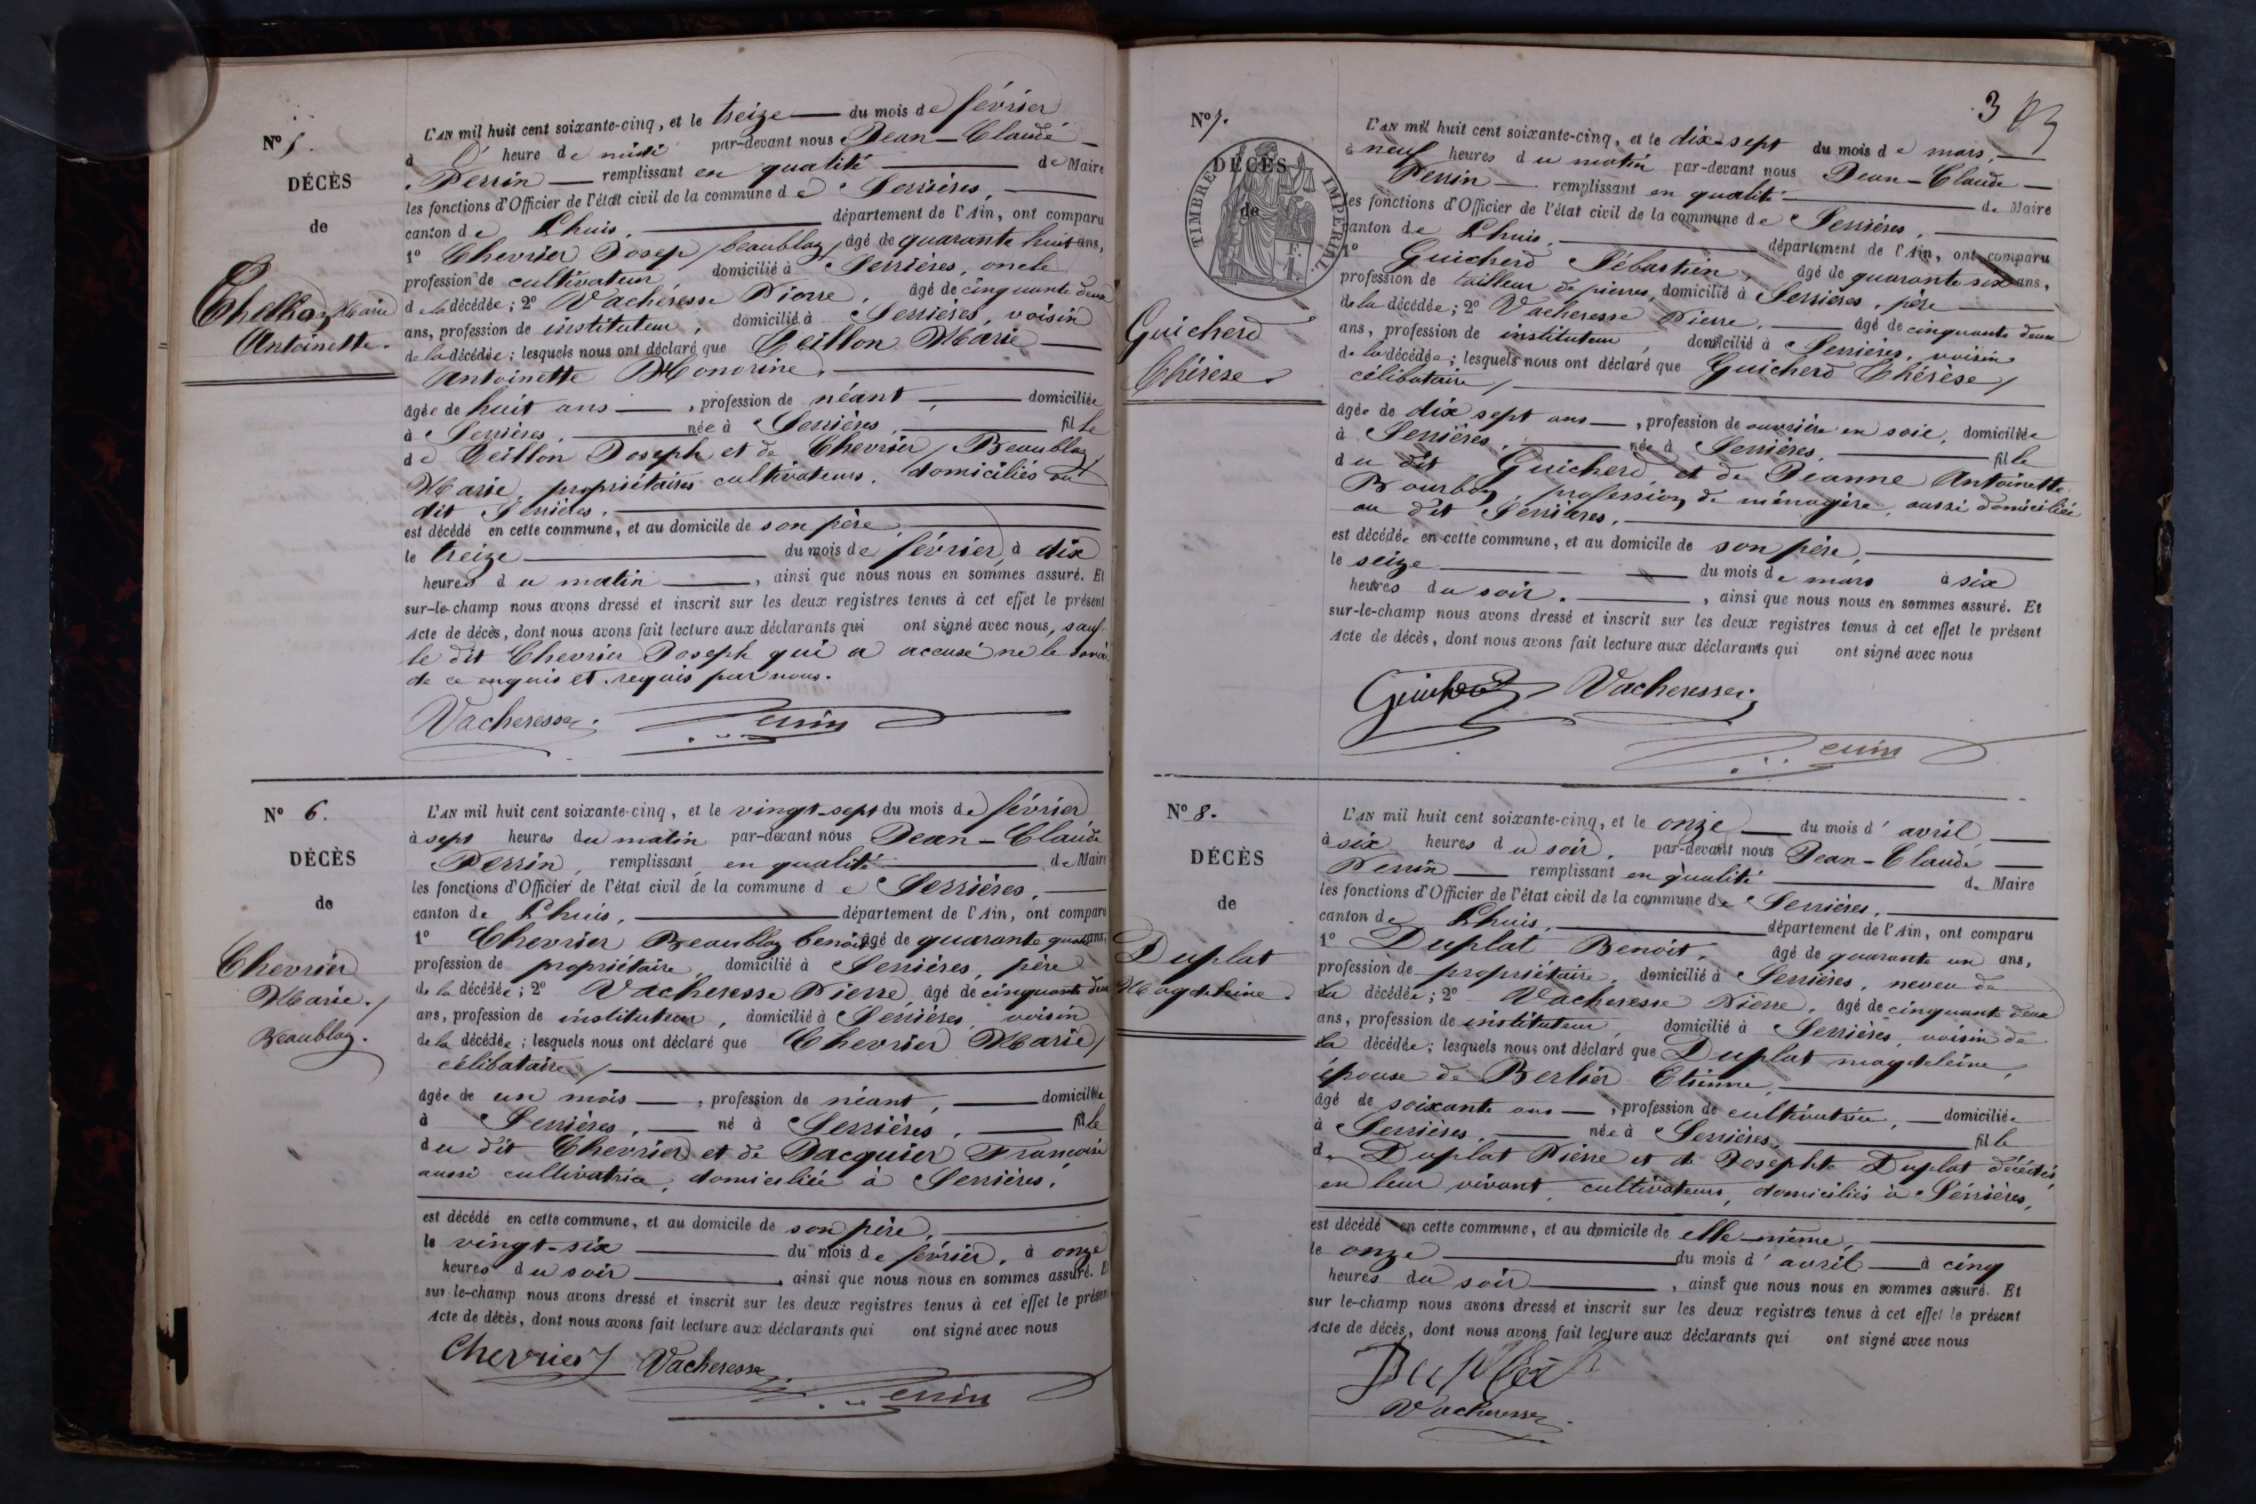 N° 5.
DÉCÈS
de
Marie
Antoinette.
L'AN mil huit cent soixante-cinq, et le treize du mois de février
à heure de midi par-devant nous Jean-Claude
Perrin remplissant en qualité de Maire
les fonctions d'Officier de l'état civil de la commune de Serrières,
canton de Lhuis, département de l'Ain, ont comparu
1° Chevrier Josep / beaublay / âgé de quarante huit ans,
profession de cultivateur, domicilié à Serrières, oncle
de la décédée; 2° Vacheresse Pierre, âgé de cinquante deux
ans, profession de instituteur, domicilié à Serrières, voisin
de la décédée; lesquels nous ont déclaré que Teillon Marie
Antoinette Honorine,
âgée de huit ans, profession de néant, domiciliée
à Serrières, née à Serrières, fille
de Teillon Joseph et de Chevrier / Beaublay /
Marie, propriétaires cultivateurs, domiciliés au
dit Serrières,
est décédé en cette commune, et au domicile de son père,
le treize du mois de février, à dix
heures du matin, ainsi que nous nous en sommes assuré. Et
sur-le-champ nous avons dressé et inscrit sur les deux registres tenus à cet effet le présent
Acte de décès, dont nous avons fait lecture aux déclarants qui ont signé avec nous, sauf
le dit Chevrier Joseph qui a accusé ne le savoir
de ce enquis et requis par nous.
Vacheresse Perrin
N° 6.
DÉCÈS
de
Chevrier
Marie. /
Beaublay.
L'AN mil huit cent soixante-cinq, et le vingt-sept du mois de février
à sept heures du matin par-devant nous Jean-Claude
Perrin, remplissant en qualité de Maire
les fonctions d'Officier de l'état civil de la commune de Serrières,
canton de Lhuis, département de l'Ain, ont comparu
1° Chevrier Beaublay benoit âgé de quarante quatre ans,
profession de propriétaire, domicilié à Serrières, père
de la décédée; 2° Vacheresse Pierre, âgé de cinquante deux
ans, profession de instituteur, domicilié à Serrières, voisin
de la décédée; lesquels nous ont déclaré que Chevrier Marie /
célibataire /
âgée de un mois, profession de néant, domiciliée
à Serrières, né à Serrières, fille
du dit Chevrier et de Jacquier Françoise
aussi cultivatrice, domiciliée à Serrières,
est décédé en cette commune, et au domicile de son père,
le vingt-six du mois de février, à onze
heures du soir, ainsi que nous nous en sommes assuré. Et
sur-le-champ nous avons dressé et inscrit sur les deux registres tenus à cet effet le présent
Acte de décès, dont nous avons fait lecture aux déclarants qui ont signé avec nous
Chevrier Vacheresse
Perrin
3
N° 7.
DÉCÈS
de
TIMBRE IMPÉRIAL.
Guicherd
Thérèse.
L'AN mil huit cent soixante-cinq, et le dix-sept du mois de mars,
à neuf heures du matin par-devant nous Jean-Claude
Perrin remplissant en qualité de Maire
les fonctions d'Officier de l'état civil de la commune de Serrières,
canton de Lhuis, département de l'Ain, ont comparu
1° Guicherd Sébastien, âgé de quarante six ans,
profession de tailleur de pierres, domicilié à Serrières, père
de la décédée; 2° Vacheresse Pierre, âgé de cinquante deux
ans, profession de instituteur, domicilié à Serrières, voisin
de la décédée; lesquels nous ont déclaré que Guicherd Thérèse /
célibataire /
âgée de dix sept ans, profession de ouvrière en soie, domiciliée
à Serrières, née à Serrières, fille
du dit Guicherd et de Jeanne Antoinette
Bourbon, profession de ménagère, aussi domiciliée
au dit Serrières,
est décédée en cette commune, et au domicile de son père,
le seize du mois de mars à six
heures du soir, ainsi que nous nous en sommes assuré. Et
sur-le-champ nous avons dressé et inscrit sur les deux registres tenus à cet effet le présent
Acte de décès, dont nous avons fait lecture aux déclarants qui ont signé avec nous
Guicherd Vacheresse
Perrin
N° 8.
DÉCÈS
de
Duplat
Magdeleine.
L'AN mil huit cent soixante-cinq, et le onze du mois d'avril,
à six heures du soir, par-devant nous Jean-Claude
Perrin remplissant en qualité de Maire
les fonctions d'Officier de l'état civil de la commune de Serrières,
canton de Lhuis, département de l'Ain, ont comparu
1° Duplat Benoit, âgé de quarante un ans,
profession de propriétaire, domicilié à Serrières, neveu de
la décédée; 2° Vacheresse Pierre, âgé de cinquante deux
ans, profession de instituteur, domicilié à Serrières, voisin de
la décédée; lesquels nous ont déclaré que Duplat magdeleine,
épouse de Berlier Etienne,
âgé de soixante ans, profession de cultivatrice, domiciliée
à Serrières, née à Serrières, fille
de Duplat Pierre et de Josephte Duplat décédés,
en leur vivant, cultivateurs, domiciliés à Serrières,
est décédé en cette commune, et au domicile de elle-même,
le onze du mois d'avril à cinq
heures du soir, ainsi que nous nous en sommes assuré. Et
sur le-champ nous avons dressé et inscrit sur les deux registres tenus à cet effet le présent
Acte de décès, dont nous avons fait lecture aux déclarants qui ont signé avec nous
Duplat
Vacheresse